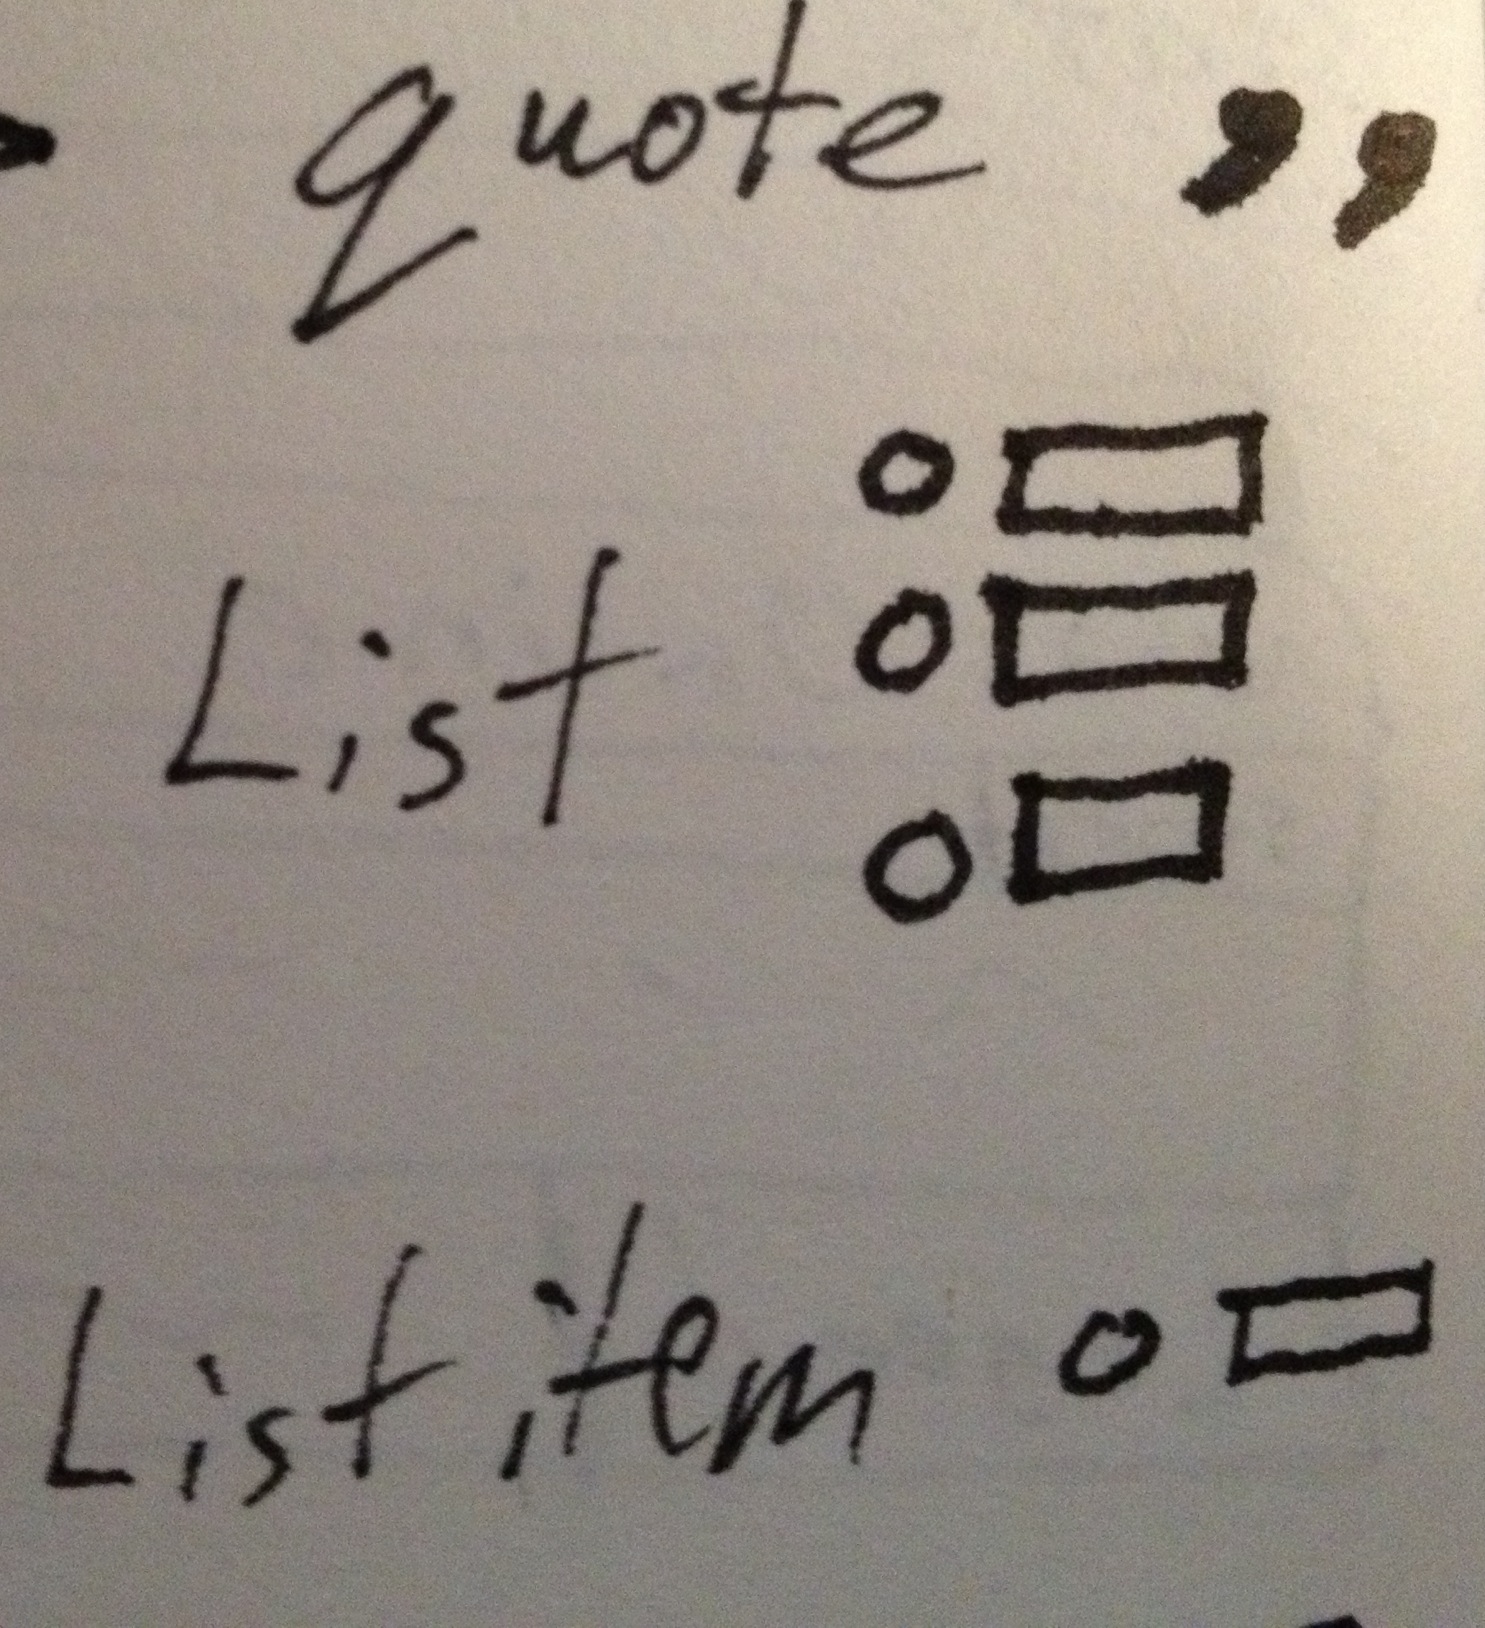 quote ”
List
List item